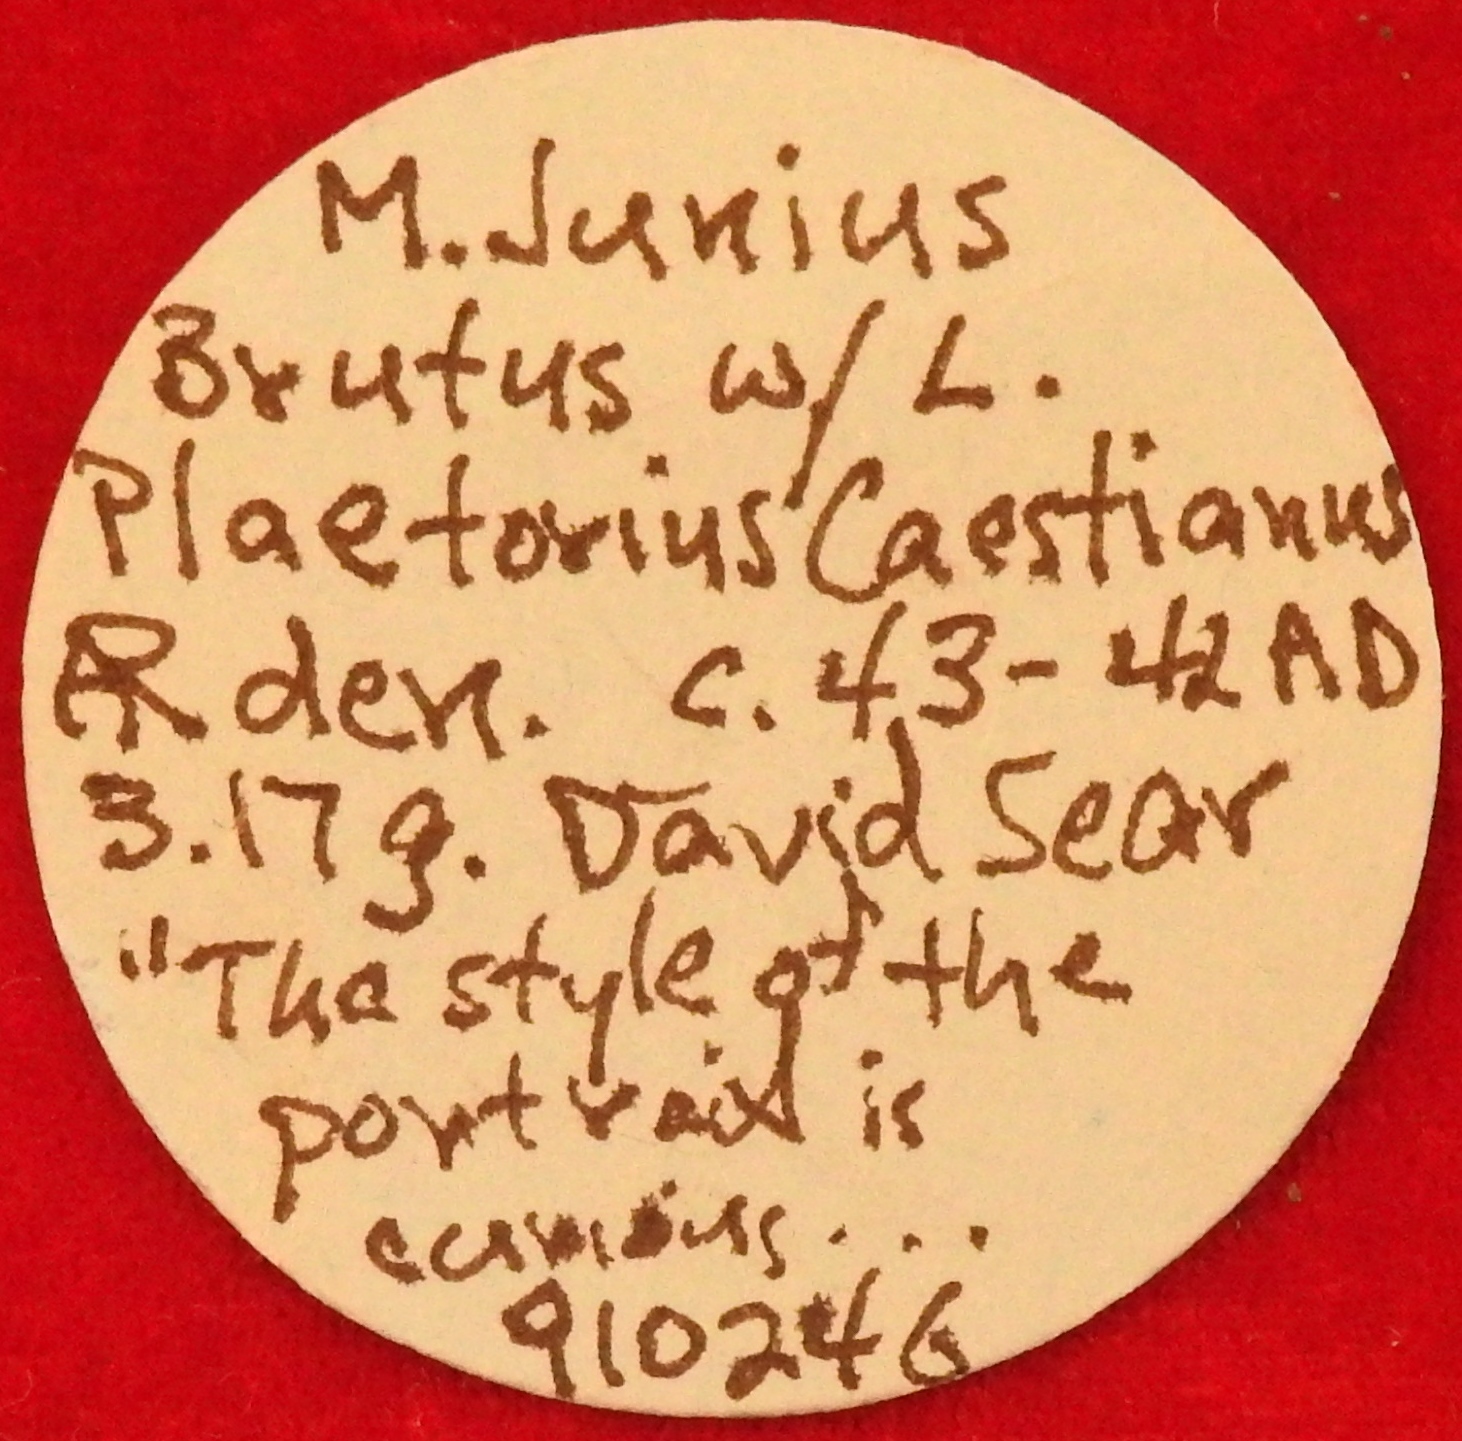 M. Junius
Brutus w/ L.
Plaetorius Caestianus
AR den. c. 43-42 AD
3.17 g. David Sear
"The style of the
portrait is
curious...
910246